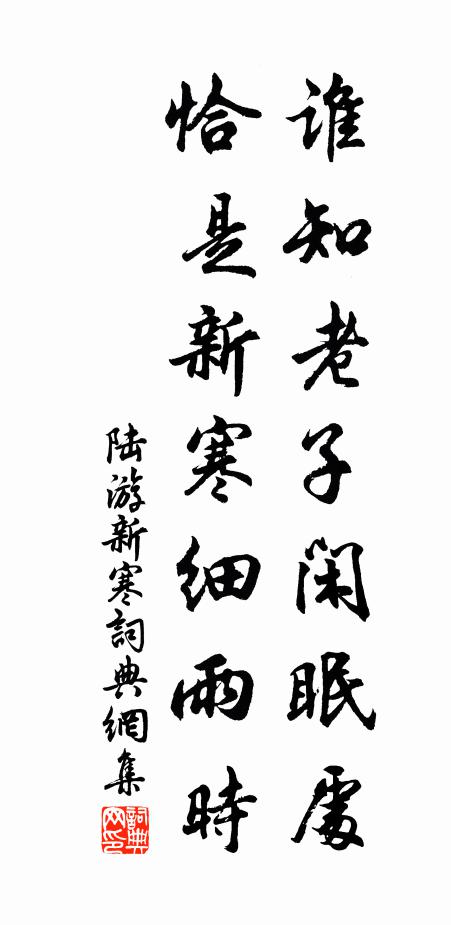 谁知老子闲眠處
恰是新寒细雨時
陆游新寒詞典網集
詞典网印